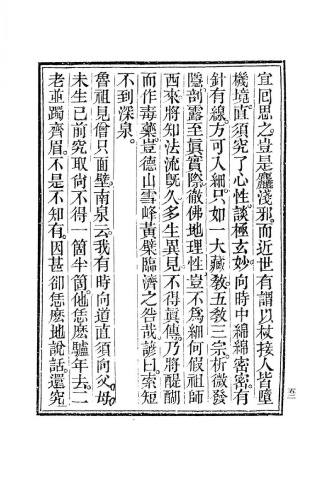 宜囘思之豈是麤淺邪而近世有謂以杖接人皆墮
機境直須究了心性談極玄妙向時中綿綿密密有
針有線方可入細只如一大藏敎五敎三宗析微發
隱剖露至眞實際徹佛地理性豈不爲細何假祖師
西來將知法流旣久多生異見不得眞傳乃將醍醐
而作毒藥豈德山雪峰黃檗臨濟之咎哉諺曰索短
不到深泉
魯祖見僧只面壁南泉云我有時向道直須向父母
未生已前究取尚不得一箇半箇他恁麽驢年去二
老並躅齊眉不是不知有因甚卻恁麽地說話還究
五二